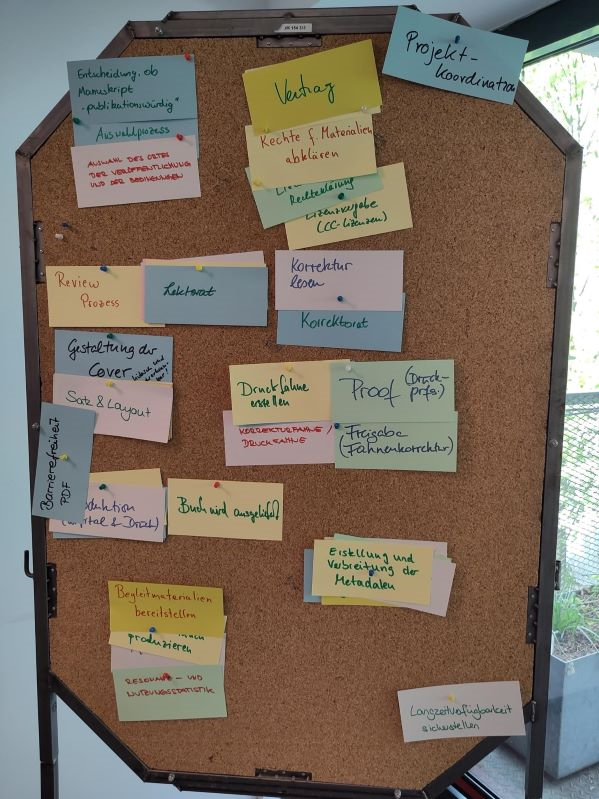 Projekt-
koordination
Entscheidung, ob
Manuskript
"publikationswürdig"
Auswahlprozess
AUSWAHL DES ORTES
DER VERÖFFENTLICHUNG
UND DER BEDINGUNGEN
Vertrag
Rechte f. Materialien
abklären
Rechteklärung
Lizenzvergabe
(CC-Lizenzen)
Review
Prozess
Lektorat
Korrektur
lesen
Korrektorat
Gestaltung der
Cover
Satz & Layout
Druckfahne
erstellen
Proof (Druck-
prüfg.)
KORREKTURFAHNE /
DRUCKFAHNE
Freigabe
(Fahnenkorrektur)
Barrierefreiheit
PDF
(Digital & Druck)
Buch wird ausgeliefert
Erstellung und
Verbreitung der
Metadaten
Begleitmaterialien
bereitstellen
produzieren
RESONANZ- UND
NUTZUNGSSTATISTIK
Langzeitverfügbarkeit
sicherstellen